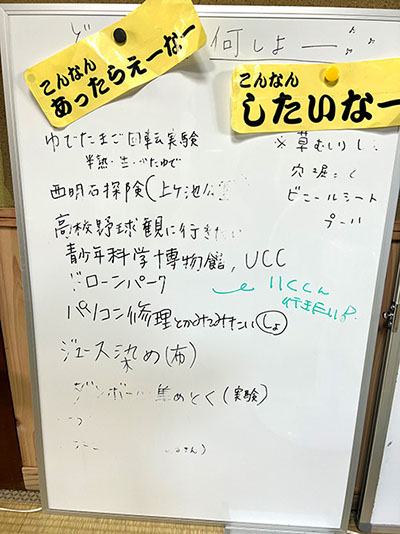 何しよー
こんなん
あったらえーなー
こんなん
したいなー
ゆでたまご回転実験
半熟・生・かたゆで
西明石探険(上ケ池公
高校野球観に行きたい
青少年科学博物館,UCC
ドローンパーク
パソコン修理とかみてみたい(しょ)
ジュース染め(布)
ダンボール集めとく(実験)
さん)
※草むしりし
穴掘
ビニールシート
プール
行きたい